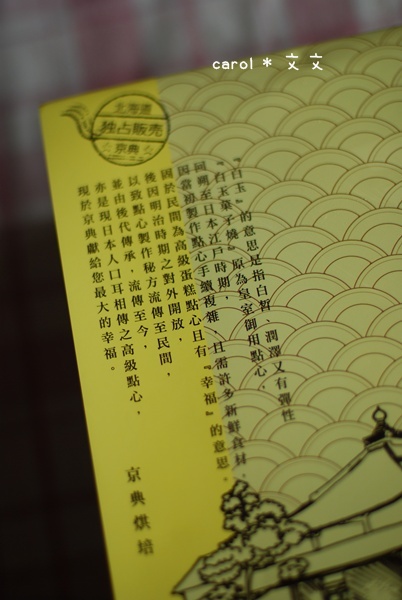 carol * 文文
北海道
独占販売
☆京典☆
『白玉』的意思是指白皙、潤澤又有彈性
『白玉菓子燒』原為皇室御用點心，
回朔至日本江戶時期，
因當初製作點心手續複雜、且需許多新鮮食材，
固於民間為高級蛋糕點心且有『幸福』的意思。
後因明治時期之對外開放，
以致點心製作秘方流傳至民間，
並由後代傳承，流傳至今，
亦是現日本人口耳相傳之高級點心，
現於京典獻給您最大的幸福。
京典烘培